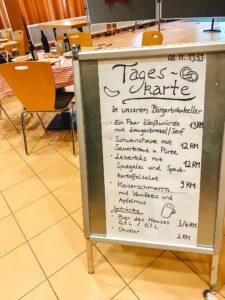 08.11.1939
Tages-
karte
in unserem Bürgerbräukeller
• Ein Paar Weißwürste
mit Laugenbrezel/Senf 13RM
• Schweinshaxe mit
Sauerkraut u. Püree 12 RM
• Leberkäs mit
Spiegelei und Speck-
kartoffelsalat 12RM
• Kaiserschmarrn
mit Vanilleeis und
Apfelmus 9 RM
Getränke
• Bier des Hauses
0,3 L / 0,5 L 3/4 RM
• Obstler 2 RM